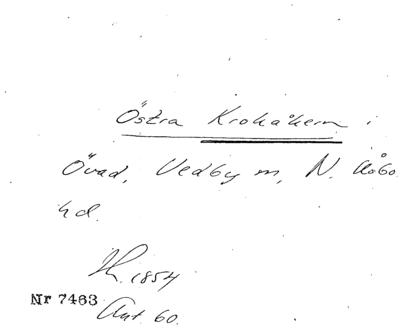 Östra Krokåkern i
Övad, Vedby m, N. Åsbo
hd.
Lh. 1854
Nr 7463
Ant 60.